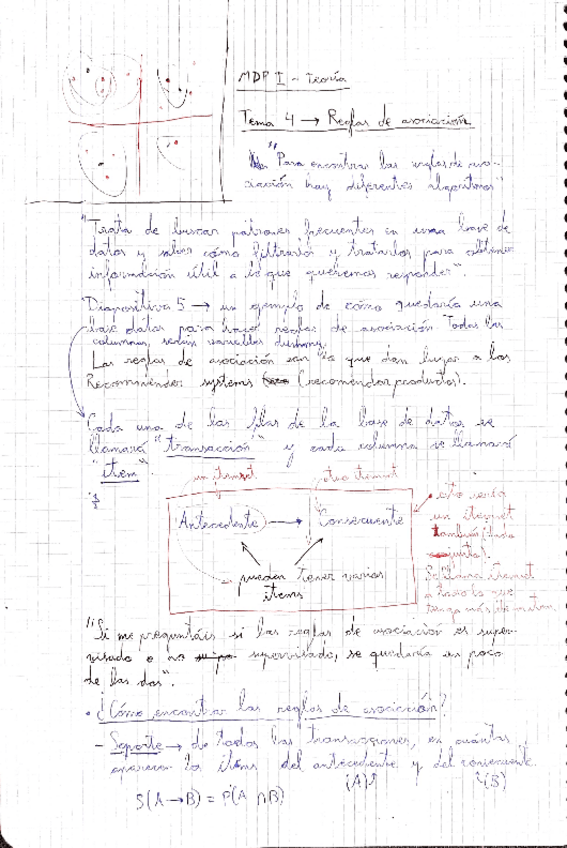 MDP I - Teoría
Tema 4 → Reglas de asociación
"Para encontrar las reglas de aso-
ciación hay diferentes algoritmos"
"Trata de buscar patrones frecuentes en una base de
datos y saber cómo filtrarlos y tratarlos para obtener
información útil a lo que queremos responder".
Diapositiva 5 → un ejemplo de cómo quedaría una
base datos para hacer reglas de asociación. Todas las
columnas serían variables dummy.
Las reglas de asociación son lo que dan lugar a los
Recommender systems (recomendar productos).
Cada una de las filas de la base de datos se
llamará "transacción" y cada columna se llamará
"item".
un itemset
otro itemset
Antecedente → Consecuente
pueden tener varios
items
esto sería
un itemset
también (todo
conjunto).
Se llama itemset
a todo lo que
tenga más de un item.
"Si me preguntáis si las reglas de asociación es super-
visado o no supervisado, se quedaría un poco
de las dos".
• ¿Cómo encontrar las reglas de asociación?
- Soporte → de todas las transacciones, en cuántas
aparecen los items del antecedente y del consecuente.
(A) (B)
S(A→B) = P(A ∩ B)